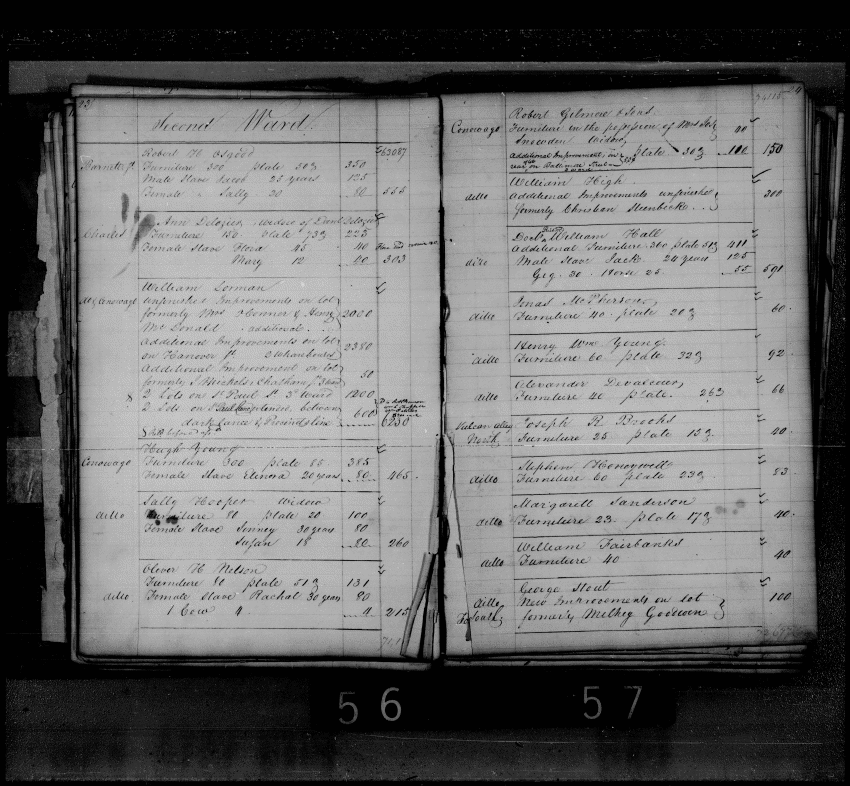 23
Second Ward.
63087
Robert H Osgood
Barnetts st Furniture 300 plate 50 350
Male Slave Jacob 25 years 125
Female " Sally 20 80 555
Ann Delozier, Widow of Danl Delozier
Charles Furniture 150 plate 73 225
Female Slave Flora 45 40
Mary 12 40 303
William Lorman
Conowago unfinished Improvements on lot
formerly Mrs OConner & Henry 2000
McDonald additional
Additional Improvements on lot
on Hanover st 2 Wharehouses 2380
Additional Improvement on lot
formerly Chatham st 50
2 Lots on St Paul St 3d Ward 1200
2 Lots on St Paul Lane extended between
dark Lane & Precincts line 600 6230
Hugh Young
Conowago Furniture 300 plate 85 385
Female Slave Elenora 20 years 80 465
Sally Hooper Widow
ditto Furniture 80 plate 20 100
Female Slave Jenney 30 years 80
Susan 18 80 260
Oliver H Nelson
Furniture 80 plate 51 131
ditto Female Slave Rachal 30 years 80
1 Cow 4 4 215
24
Robert Gilmore & Sons
Conowago Furniture in the possession of Mrs
Snowden Widow plate 50
Additional Improvement, on
rear on Baltimore Street 100 150
William High
ditto Additional Improvements unfinished
formerly Christian 300
Doct William Hall
Additional Furniture 360 plate 51 411
ditto Male Slave Jack 24 years 125
Gig 30 Horse 25 55 591
Jonas McPherson
ditto Furniture 40 plate 20 60
Henry Wm Young
ditto Furniture 60 plate 32 92
Alexander
ditto Furniture 40 plate 26 66
Joseph R Brooks
Vulcan alley North Furniture 25 plate 15 40
Stephen Honeywell
ditto Furniture 60 plate 23 83
Margarett Sanderson
ditto Furniture 23 plate 17 40
William Fairbanks
ditto Furniture 40 40
George Stout
ditto New Improvements on lot 100
South formerly Goodwin
56
57